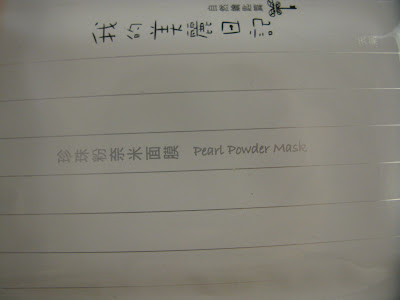 我的美麗日記
自然鑰系列
珍珠粉奈米面膜 Pearl Powder Mask